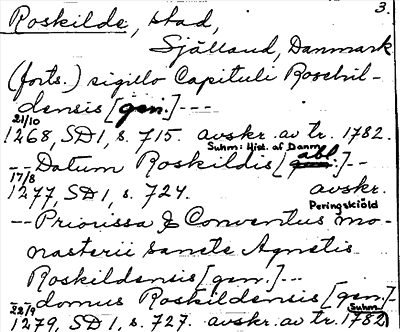 3.
Roskilde, stad,
Själland, Danmark
(forts.) sigillo Capituli Roschil-
densis [gen.] ---
21/10
1268, SD1, s. 715. avskr. av tr. 1782.
Suhm: Hist. af Danm
-- Datum Roskildis [abl.] --
17/8
1277, SD1, s. 724. avskr.
Peringskiöld
-- Priorissa & Conventus mo-
nasterii sancte Agnetis
Roskildensis [gen.] ---
domus Roskildensis [gen.] -
22/9 Suhm
1279, SD1, s. 727. avskr. av tr. 1782